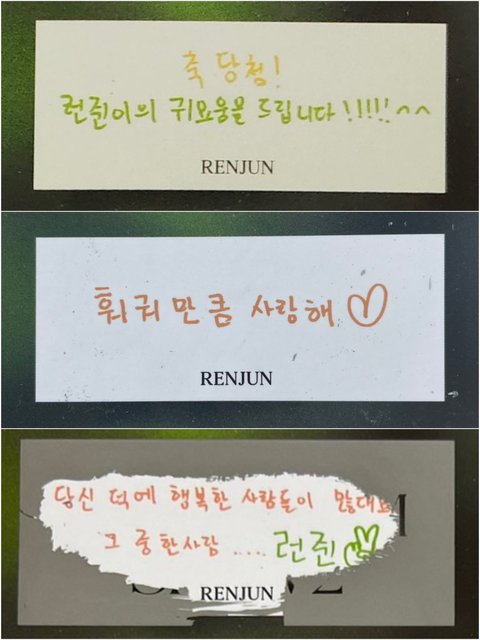 축 당첨!
런쥔이의 귀요움을 드립니다!!!!! ^^
RENJUN
훠궈만큼 사랑해♡
RENJUN
당신 덕에 행복한 사람들이 많대요
그 중 한사람 .... 런쥔
RENJUN